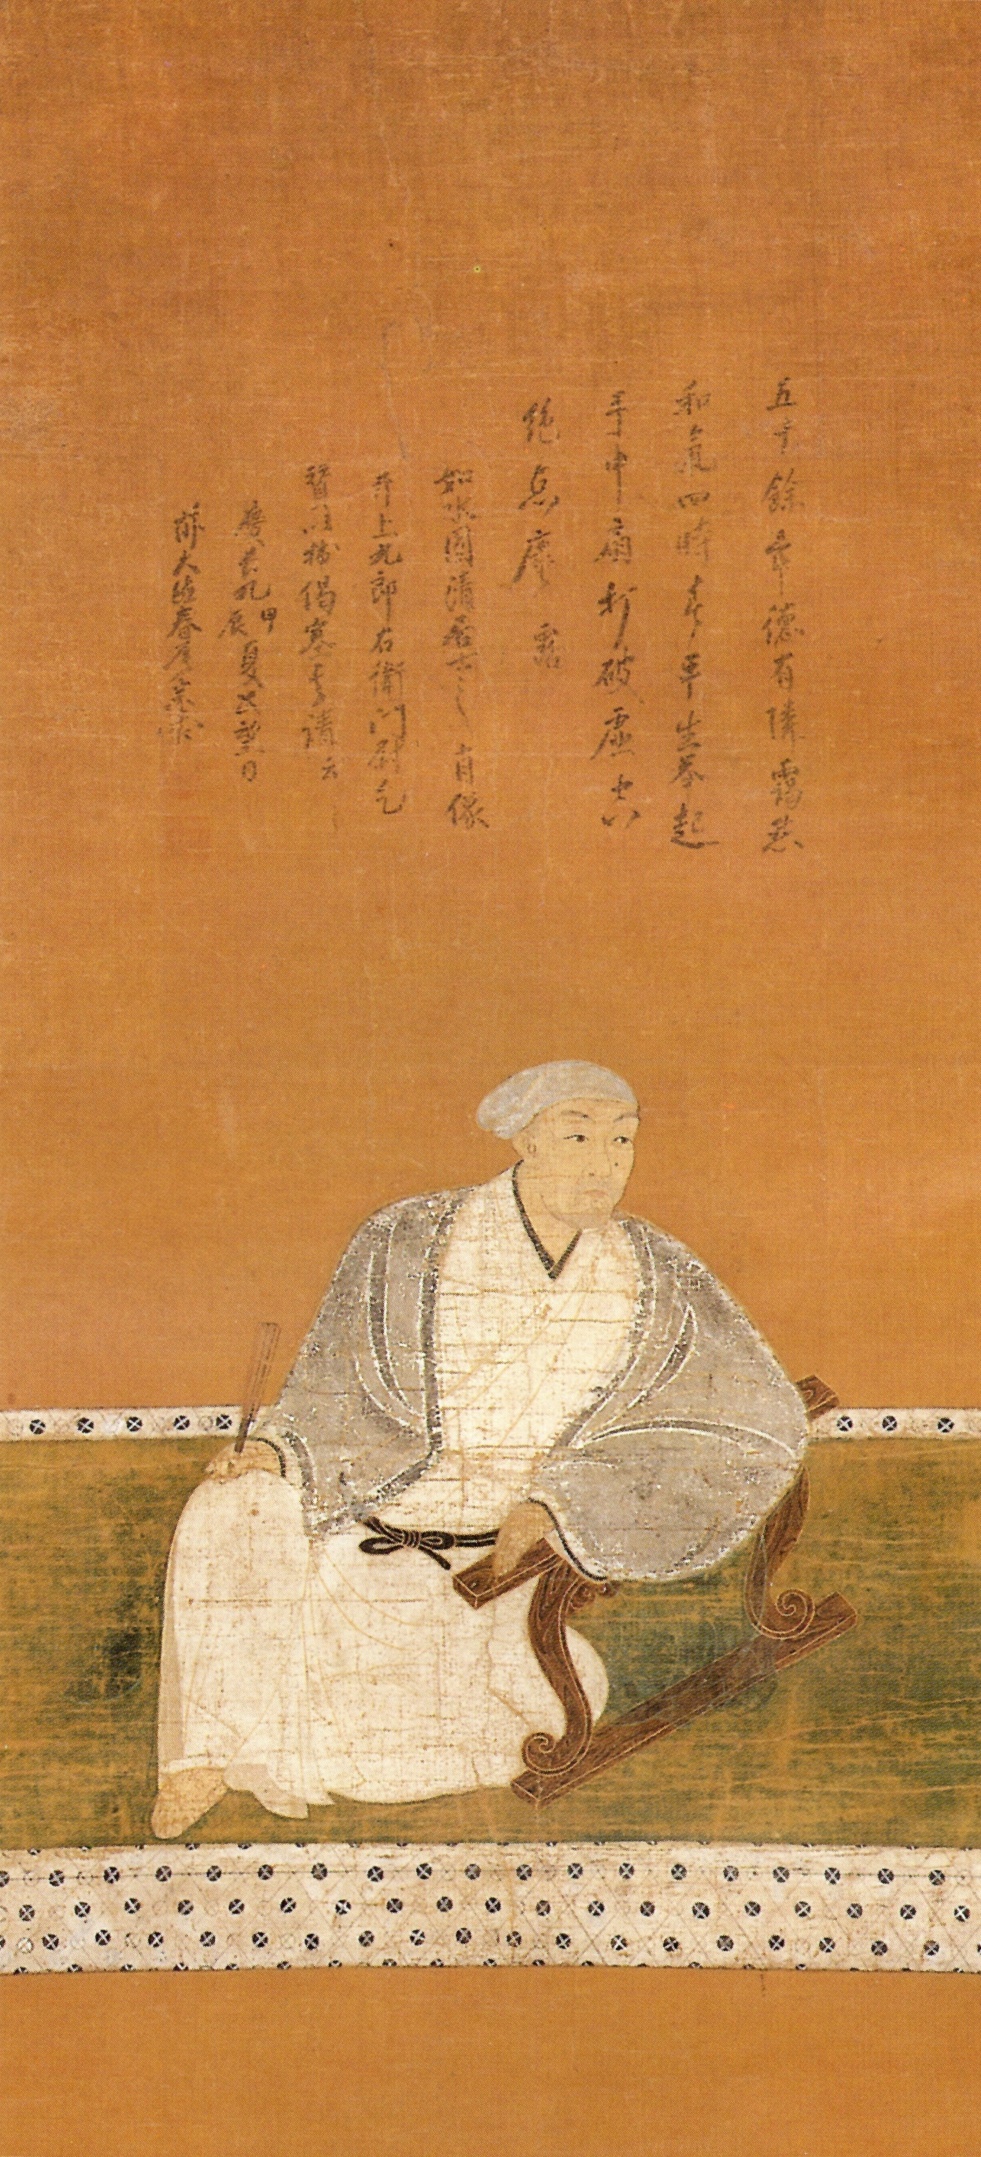 五十餘年德有隣靄然
和氣四時春平生拳起
手中扇打破虚空
絶点塵 露
如水圓清居士之肖像
井上九郎右衛門尉乞
賛以拙偈塞其請云
慶長九甲辰夏六望日
前大德春屋宗